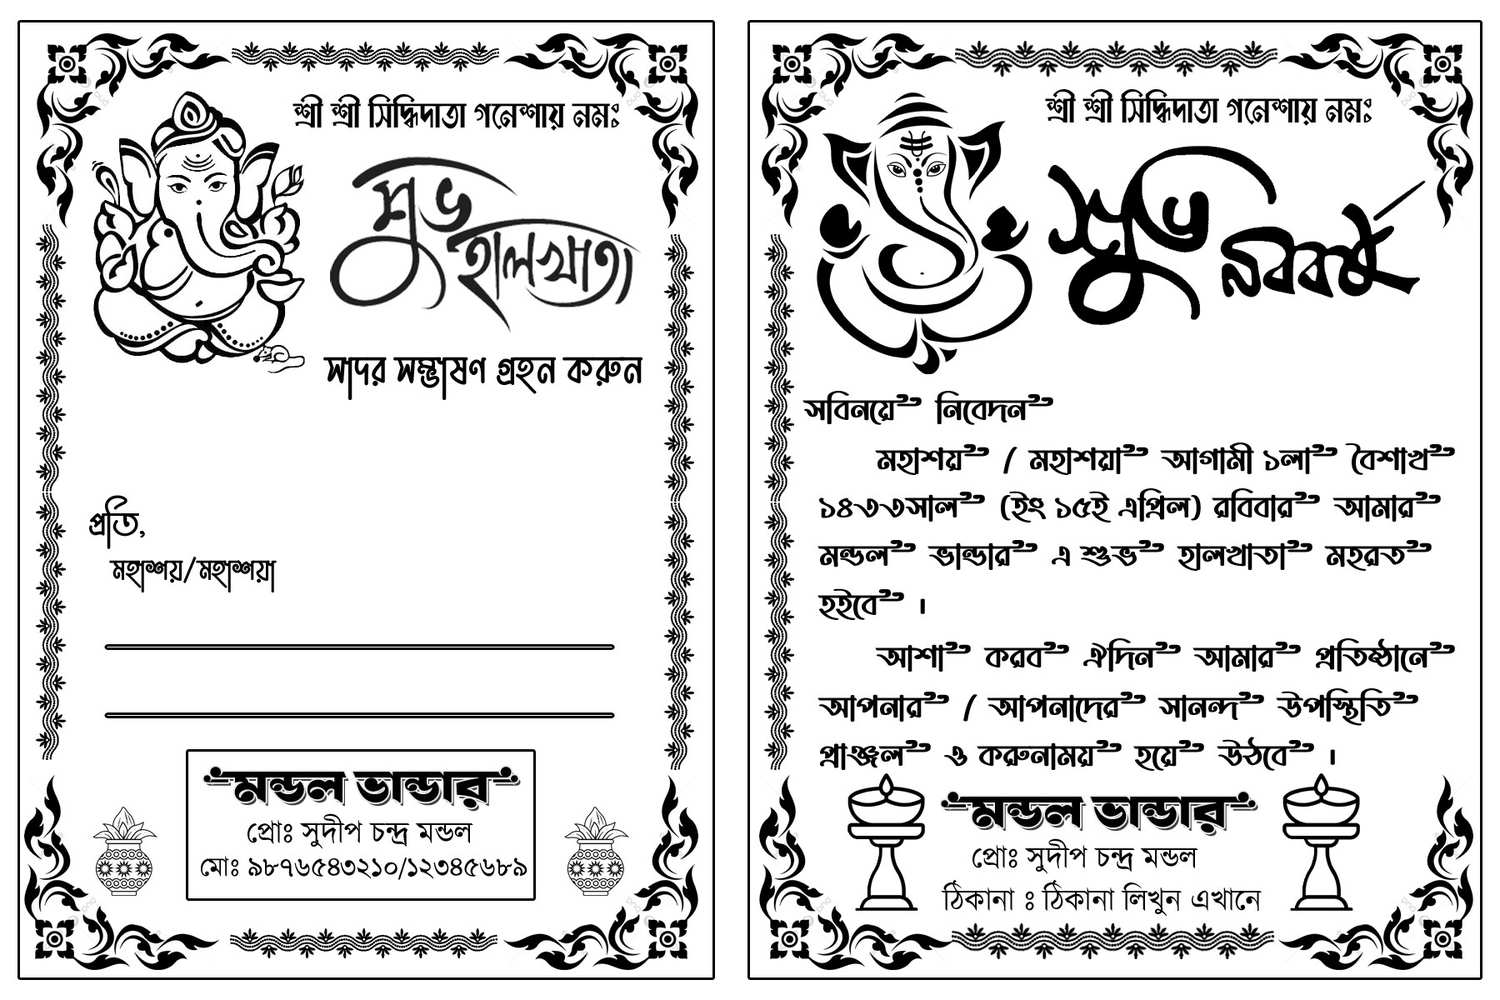 শ্রী শ্রী সিদ্ধিদাতা গনেশায় নমঃ
শুভ
হালখাতা
সাদর সম্ভাষণ গ্রহন করুন
প্রতি,
মহাশয়/মহাশয়া
মন্ডল ভান্ডার
প্রোঃ সুদীপ চন্দ্র মন্ডল
মোঃ ৯৮৭৬৫৪৩২১০/১২৩৪৫৬৮৯
শ্রী শ্রী সিদ্ধিদাতা গনেশায় নমঃ
শুভ
নববর্ষ
সবিনয়ে নিবেদন
মহাশয় / মহাশয়া আগামী ১লা বৈশাখ
১৪৩৩সাল (ইং ১৫ই এপ্রিল) রবিবার আমার
মন্ডল ভান্ডার এ শুভ হালখাতা মহরত
হইবে ।
আশা করব ঐদিন আমার প্রতিষ্ঠানে
আপনার / আপনাদের সানন্দ উপস্থিতি
প্রাঞ্জল ও করুনাময় হয়ে উঠবে ।
মন্ডল ভান্ডার
প্রোঃ সুদীপ চন্দ্র মন্ডল
ঠিকানা ঃ ঠিকানা লিখুন এখানে